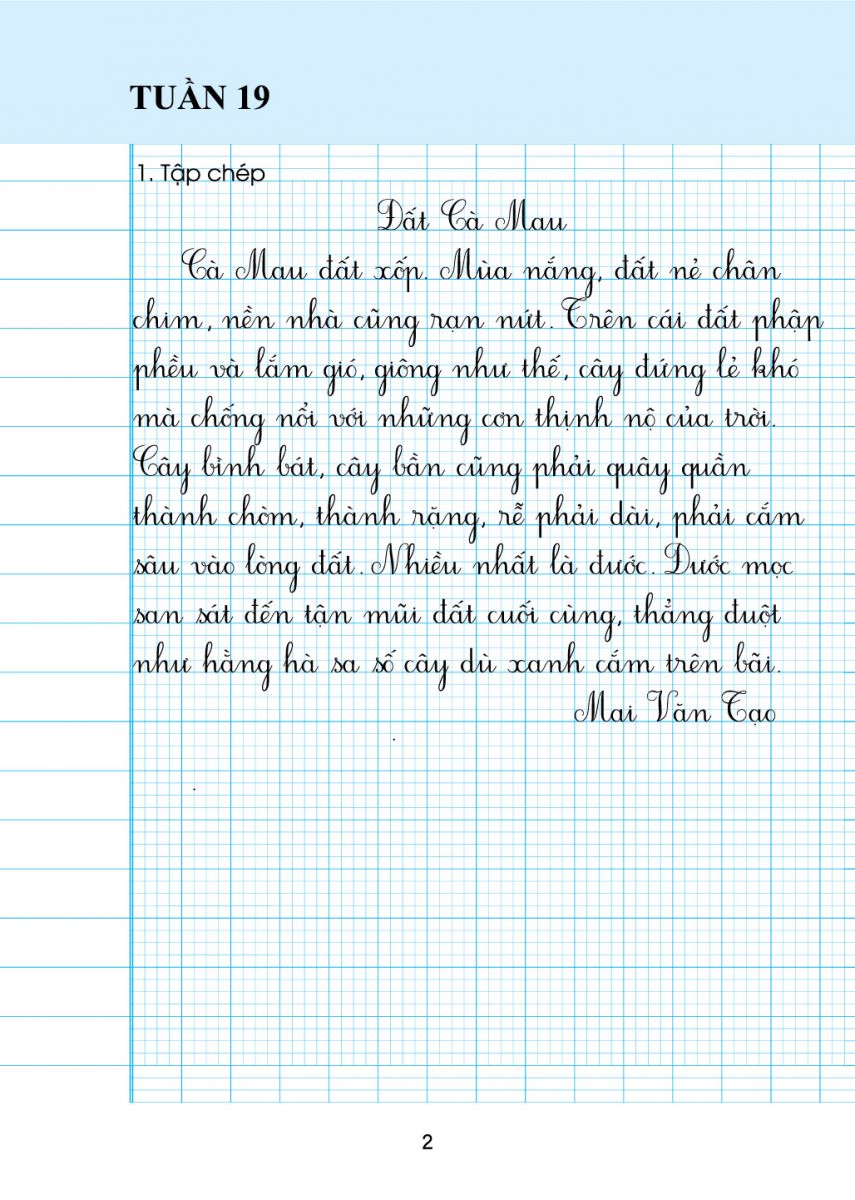 TUẦN 19
1. Tập chép
Đất Cà Mau
Cà Mau đất xốp. Mùa nắng, đất nẻ chân
chim, nền nhà cũng rạn nứt. Trên cái đất phập
phều và lắm gió, giông như thế, cây đứng lẻ khó
mà chống nổi với những cơn thịnh nộ của trời.
Cây bình bát, cây bần cũng phải quây quần
thành chòm, thành rặng, rễ phải dài, phải cắm
sâu vào lòng đất. Nhiều nhất là đước. Đước mọc
san sát đến tận mũi đất cuối cùng, thẳng đuột
như hằng hà sa số cây dù xanh cắm trên bãi.
Mai Văn Tạo
2